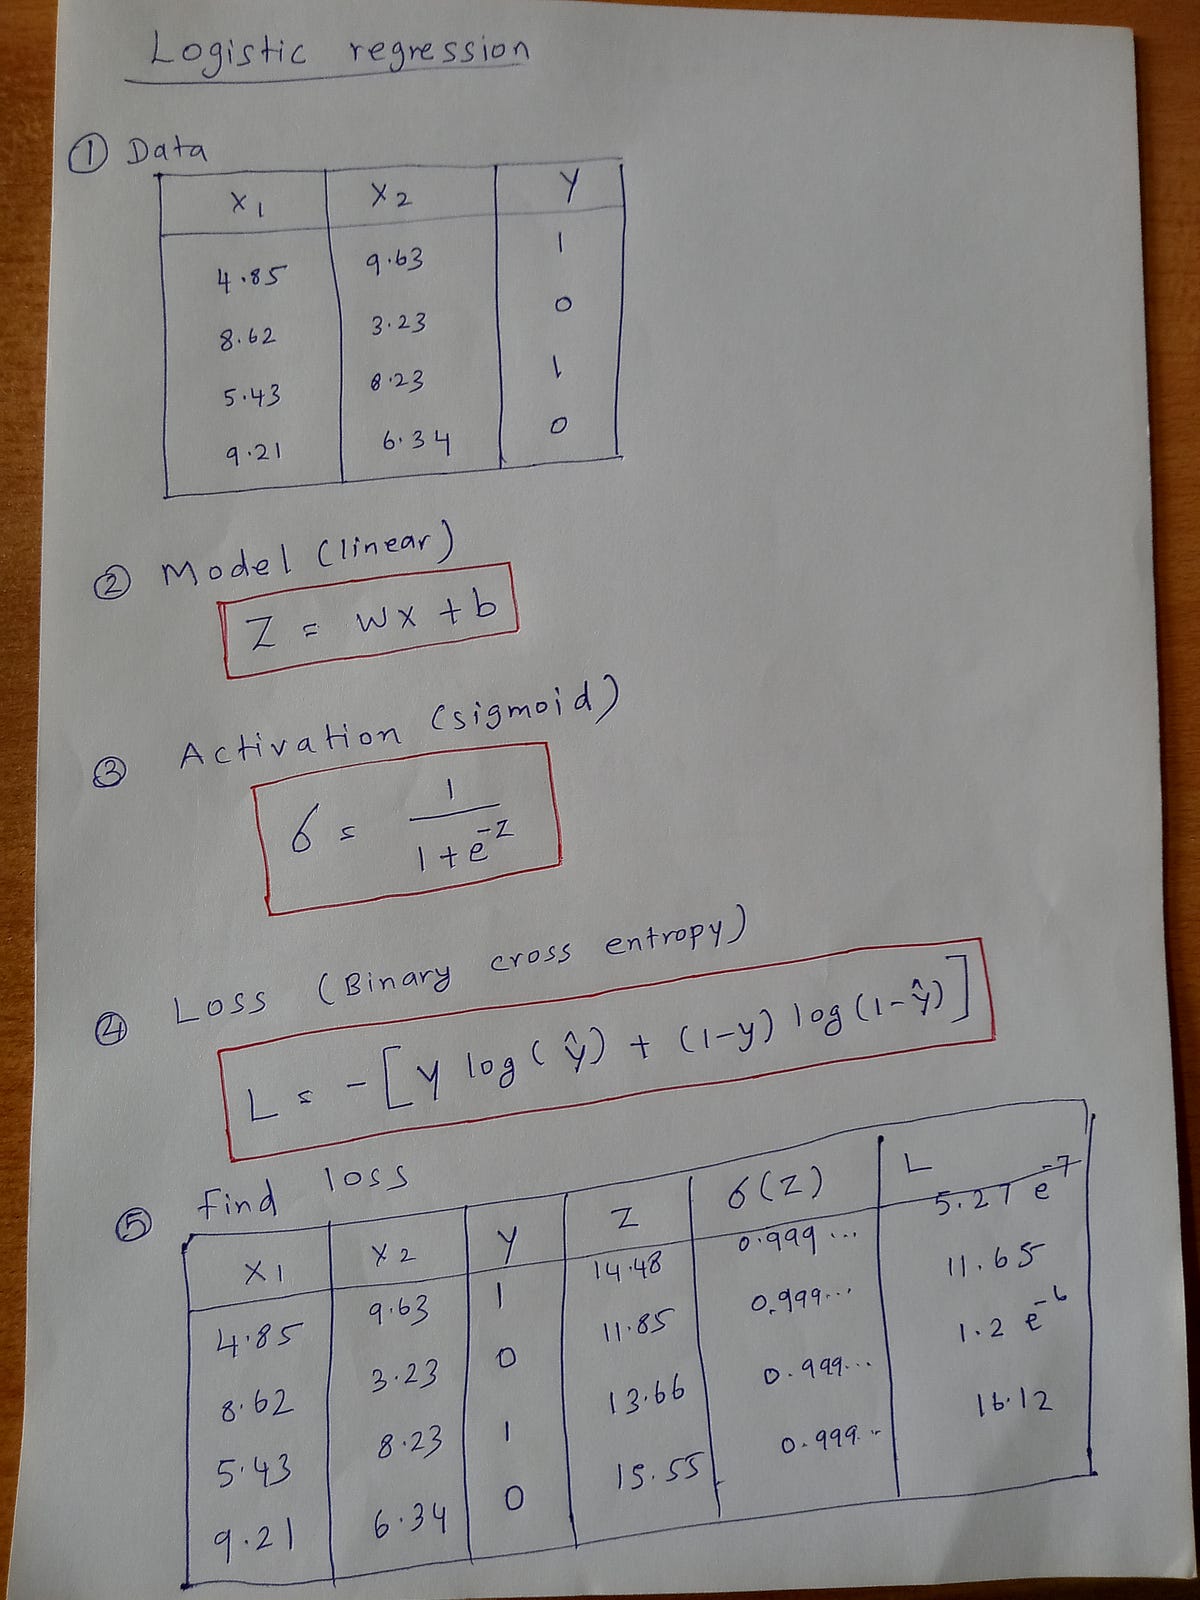 Logistic regression
① Data
X1 X2 Y
4.85 9.63 1
8.62 3.23 0
5.43 8.23 1
9.21 6.34 0
② Model (linear)
Z = WX + b
③ Activation (sigmoid)
σ = 1 / (1 + e^-Z)
④ Loss (Binary cross entropy)
L = -[Y log(ŷ) + (1-y) log(1-ŷ)]
⑤ find loss
X1 X2 Y Z σ(Z) L
4.85 9.63 1 14.48 0.999... 5.27 e^-7
8.62 3.23 0 11.85 0.999... 11.65
5.43 8.23 1 13.66 0.999... 1.2 e^-6
9.21 6.34 0 15.55 0.999.. 16.12